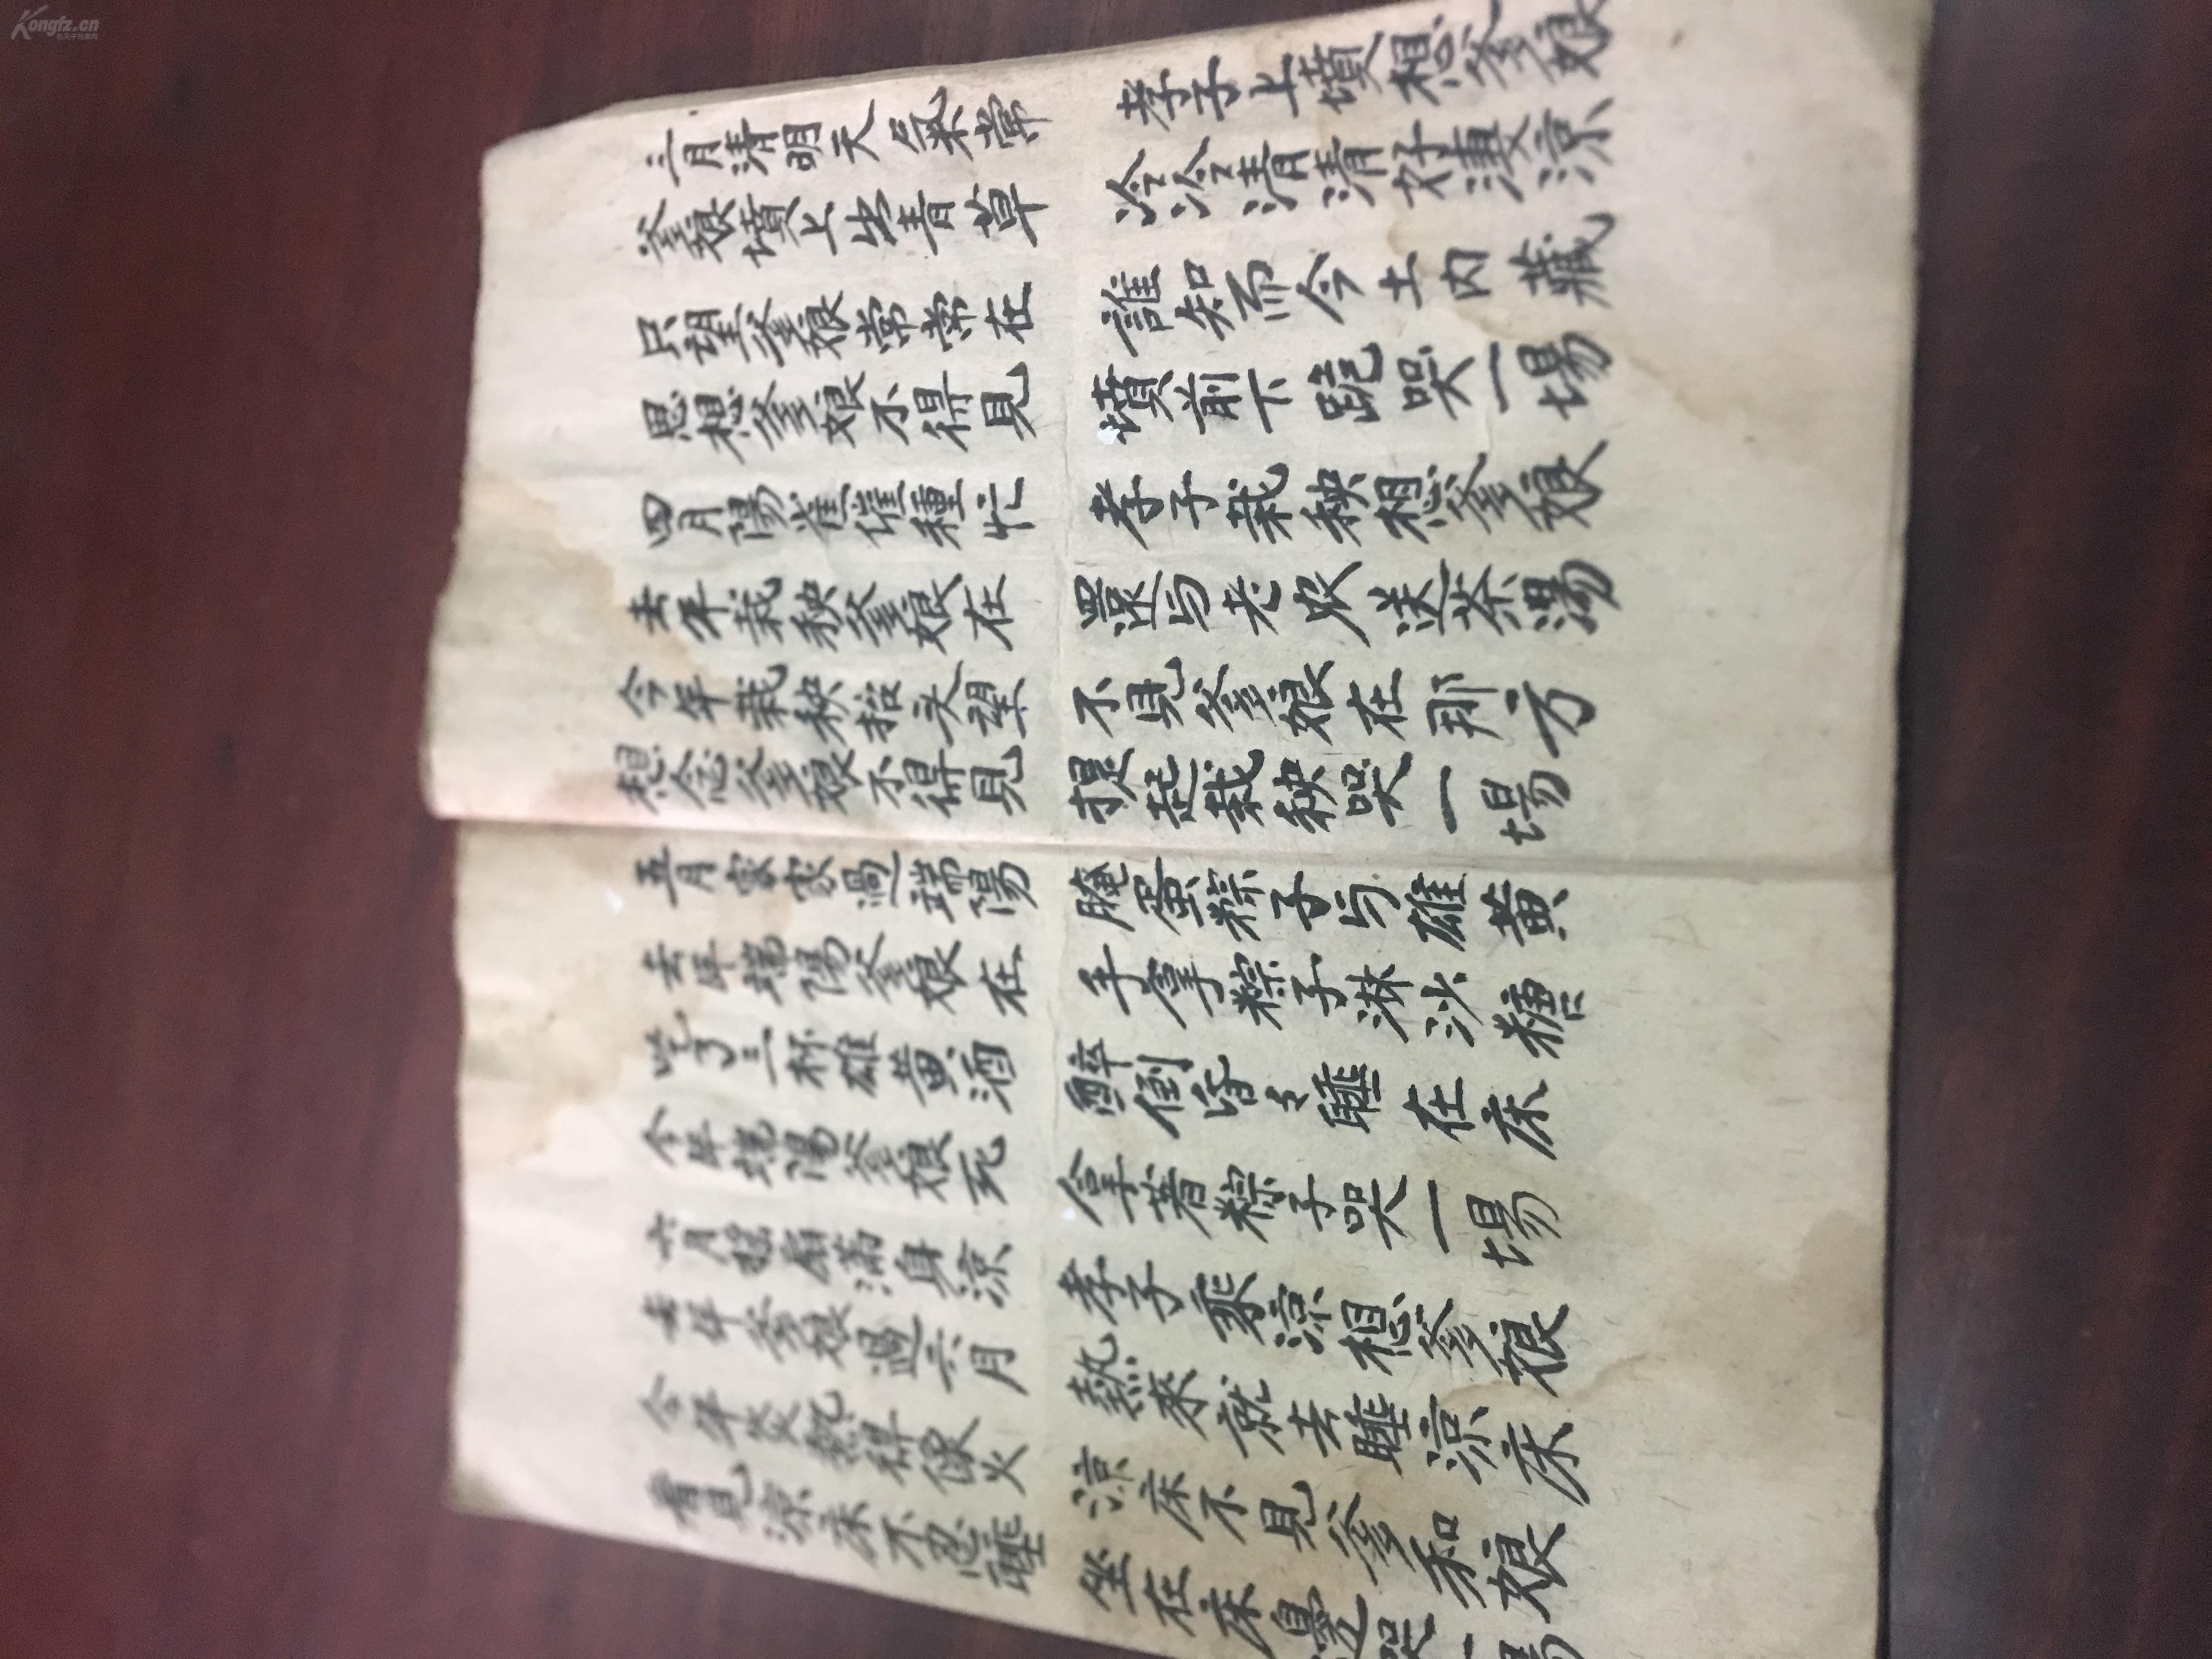 三月清明天氣常 孝子上墳想爹娘
爹娘墳上出青草 冷冷清清好凄涼
只望爹娘常常在 誰知而今土内藏
思想爹娘不得見 墳前下跪哭一場
四月陽雀催種忙 孝子栽秧想爹娘
去年栽秧爹娘在 還与老农送茶湯
今年栽秧抬头望 不見爹娘在那方
想念爹娘不得見 提起栽秧哭一場
五月家家過端陽 腌蛋粽子与雄黄
去年端陽爹娘在 手拿粽子淋沙糖
吃了三杯雄黄酒 醉倒昏々睡在床
今年端陽爹娘死 拿着粽子哭一場
六月摇扇满身涼 孝子乘涼想爹娘
去年爹娘過六月 熱來就去睡涼床
今年炎熱得像火 涼床不見爹和娘
看見涼床不忍睡 坐在床邊哭一場
Kongfz.cn